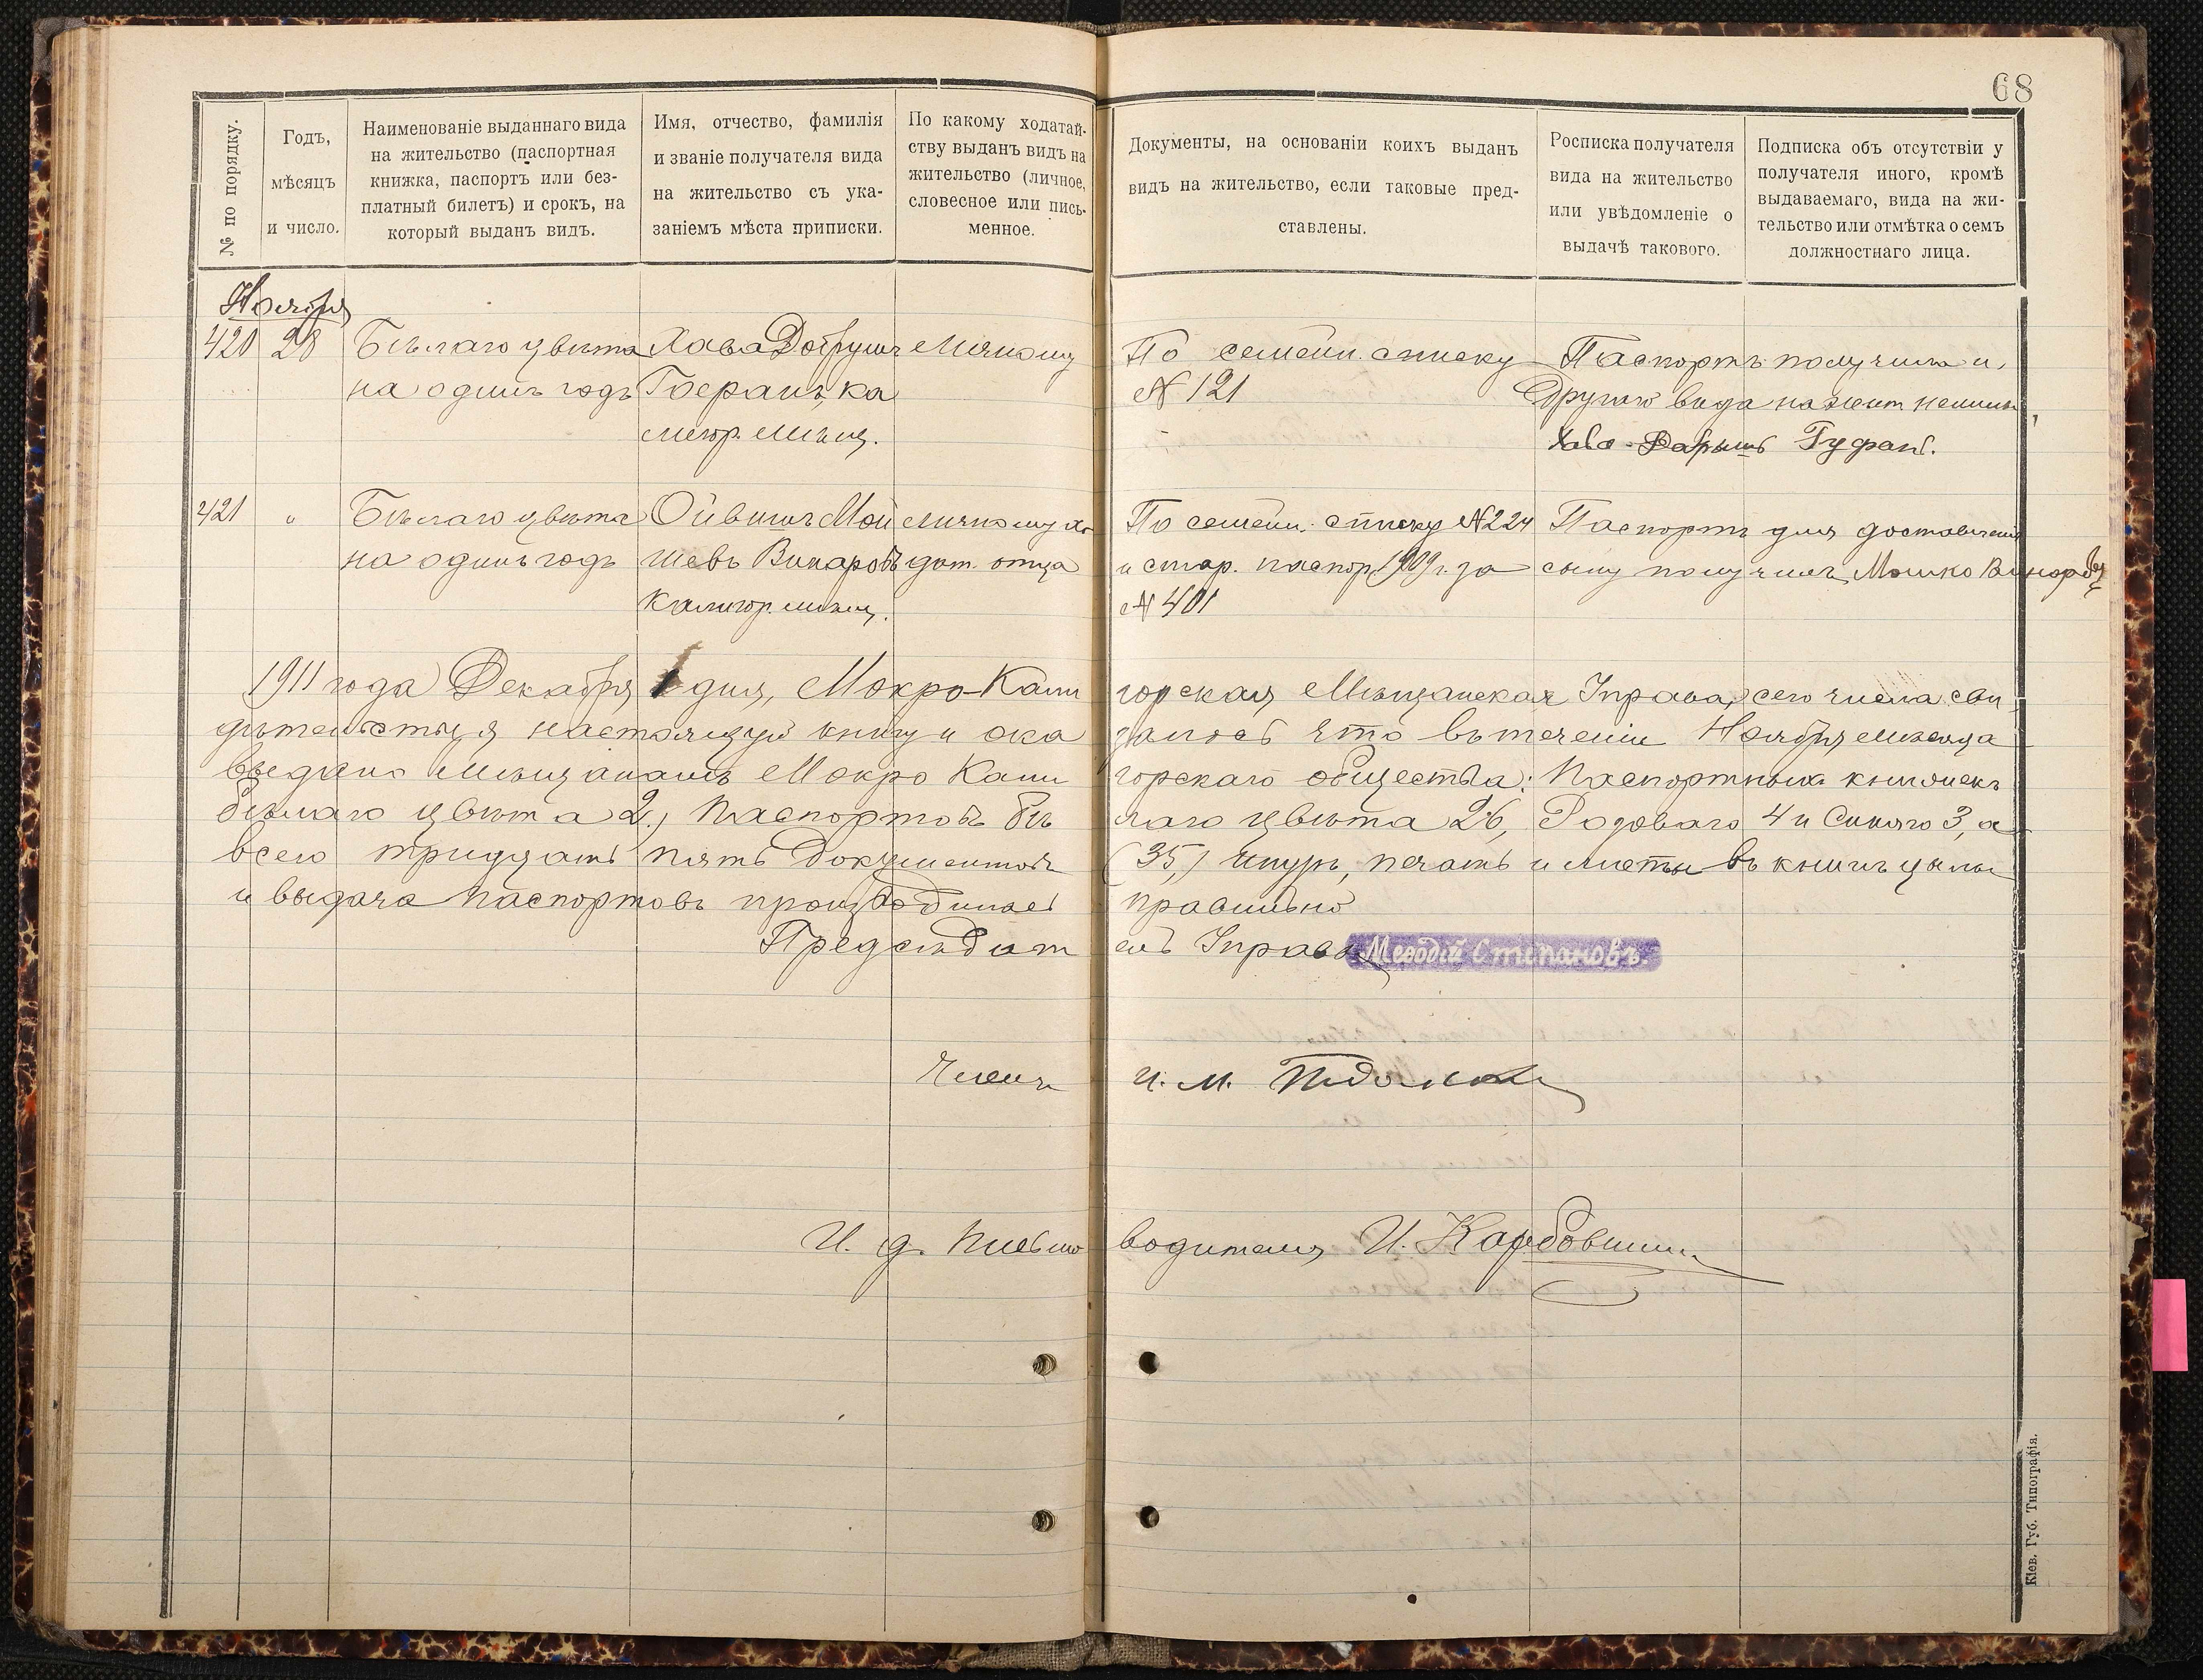 68
№ по порядку.
Годъ,
мѣсяцъ
и число.
Наименованіе выданнаго вида
на жительство (паспортная
книжка, паспортъ или без-
платный билетъ) и срокъ, на
который выданъ видъ.
Имя, отчество, фамилія
и званіе получателя вида
на жительство съ ука-
заніемъ мѣста приписки.
По какому ходатай-
ству выданъ видъ на
жительство (личное,
словесное или пись-
менное.
Документы, на основаніи коихъ выданъ
видъ на жительство, если таковые пред-
ставлены.
Росписка получателя
вида на жительство
или увѣдомленіе о
выдачѣ такового.
Подписка объ отсутствіи у
получателя иного, кромѣ
выдаваемаго, вида на жи-
тельство или отмѣтка о семъ
должностнаго лица.
Ноября
420 28 Бѣлаго цвѣта
на одинъ годъ
Хава
мѣщ.
Личному
По семейн. списку
№ 121
Паспортъ получила и
другого вида на жит
421 " Бѣлаго цвѣта
на одинъ годъ
Мой
шевъ Винаровъ
Личному хо
дат. отца
По семейн. списку №224
и стар. паспор. 1909 г. за
№ 401
Паспортъ для доставленія
сыну получилъ Мошко
1911 года Декабря 1 дня, Мокро-Кали горская Мѣщанская Управа, сего числа сви
дѣтельствуя настоящую книгу и ока залось что въ теченіи Ноября мѣсяца
выдано Мѣщанамъ Мокро Кали горскаго общества: Паспортныхъ книжекъ
бѣлаго цвѣта 2, Паспортовъ бѣ лаго цвѣта 26, Розоваго 4 и Синяго 3, а
всего тридцать пять документовъ (35,) шнуръ, печать и листы въ книгѣ цѣлы
и выдача паспортовъ производилась правильно
Предсѣдат ель Управы Меѳодій Степановъ.
Членъ И. М.
И. д. Письмо водителя И.
Кіев. Губ. Типографія.